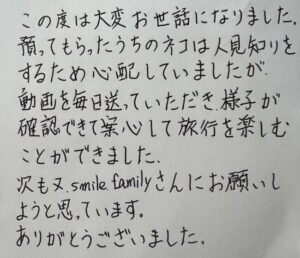 この度は大変お世話になりました.
預ってもらったうちのネコは人見知りを
するため心配していましたが.
動画を毎日送っていただき.様子が
確認できて安心して旅行を楽しむ
ことができました.
次も又.smile familyさんにお願いし
ようと思っています.
ありがとうございました.